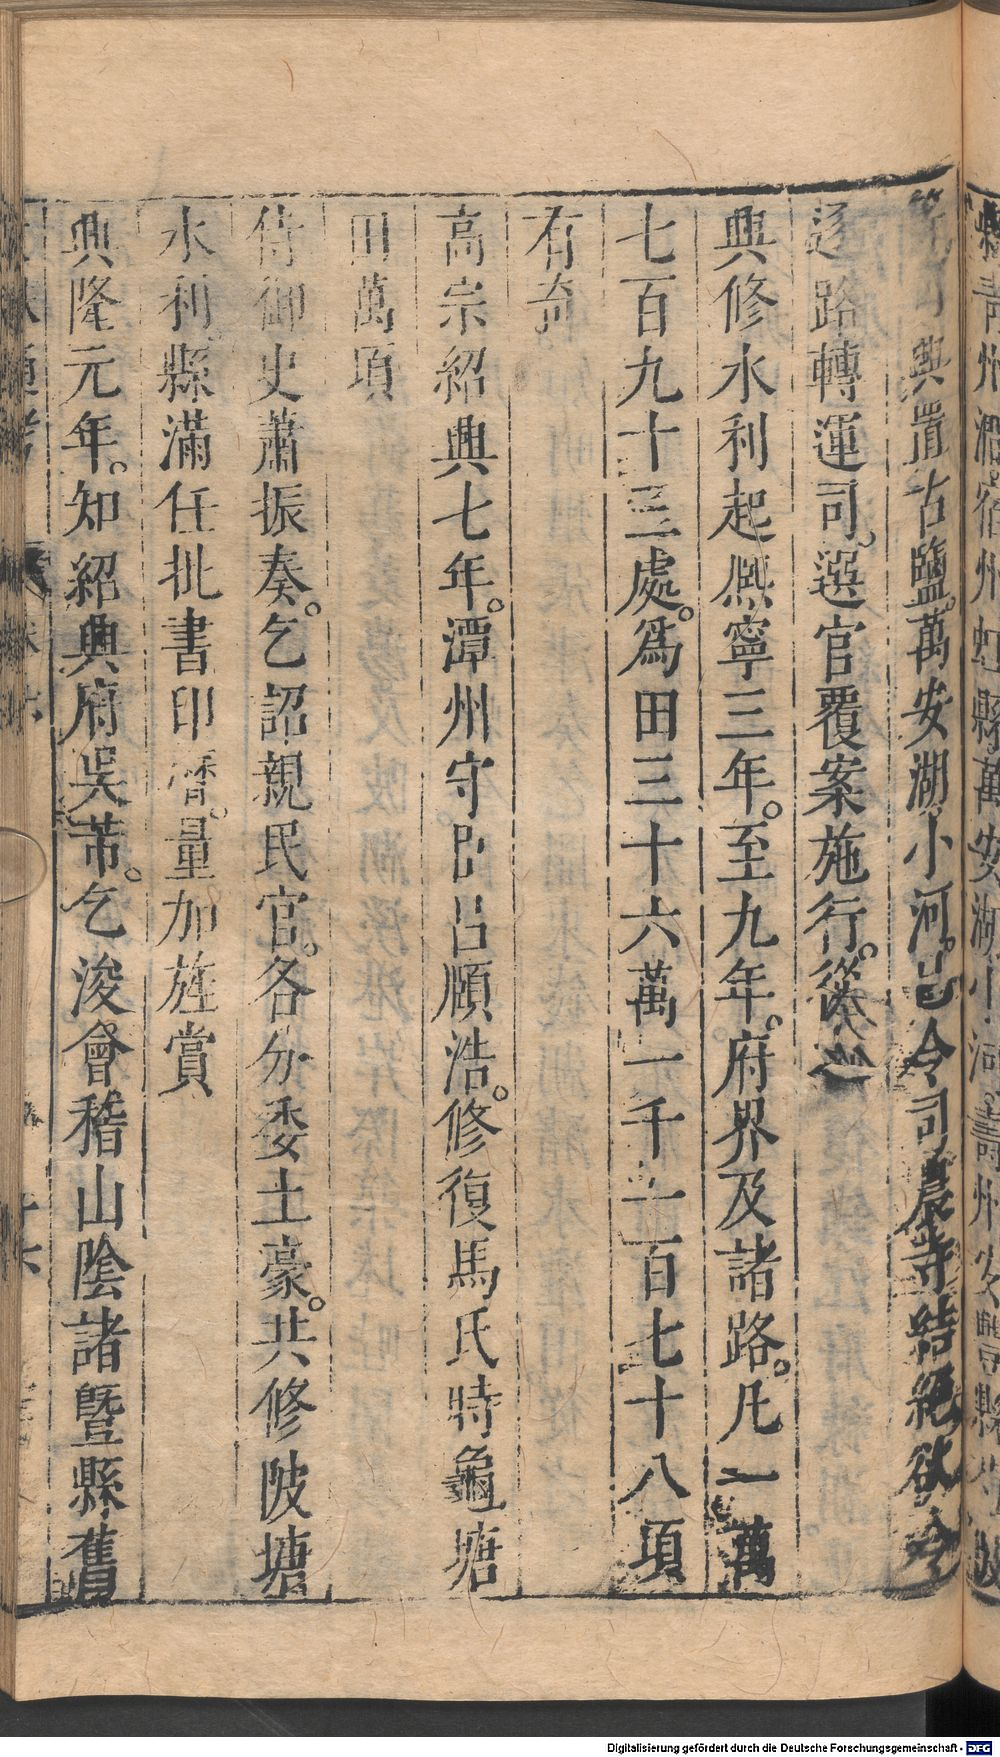 縣青州潤宿州虹縣萬安湖小河壽州安豐縣
可興置古鹽萬安湖小河已令司農寺結絕欲令
逐路轉運司選官覆案施行從之
興修水利起熙寧三年至九年府界及諸路凡一萬
七百九十三處爲田三十六萬一千一百七十八頃
有奇
高宗紹興七年潭州守臣呂頤浩修復馬氏時龜塘
田萬頃
侍御史蕭振奏乞詔親民官各分委土豪共修陂塘
水利縣滿任批書印曆量加旌賞
興隆元年知紹興府吳芾乞浚會稽山陰諸暨縣舊
Digitalisierung gefördert durch die Deutsche Forschungsgemeinschaft - DFG